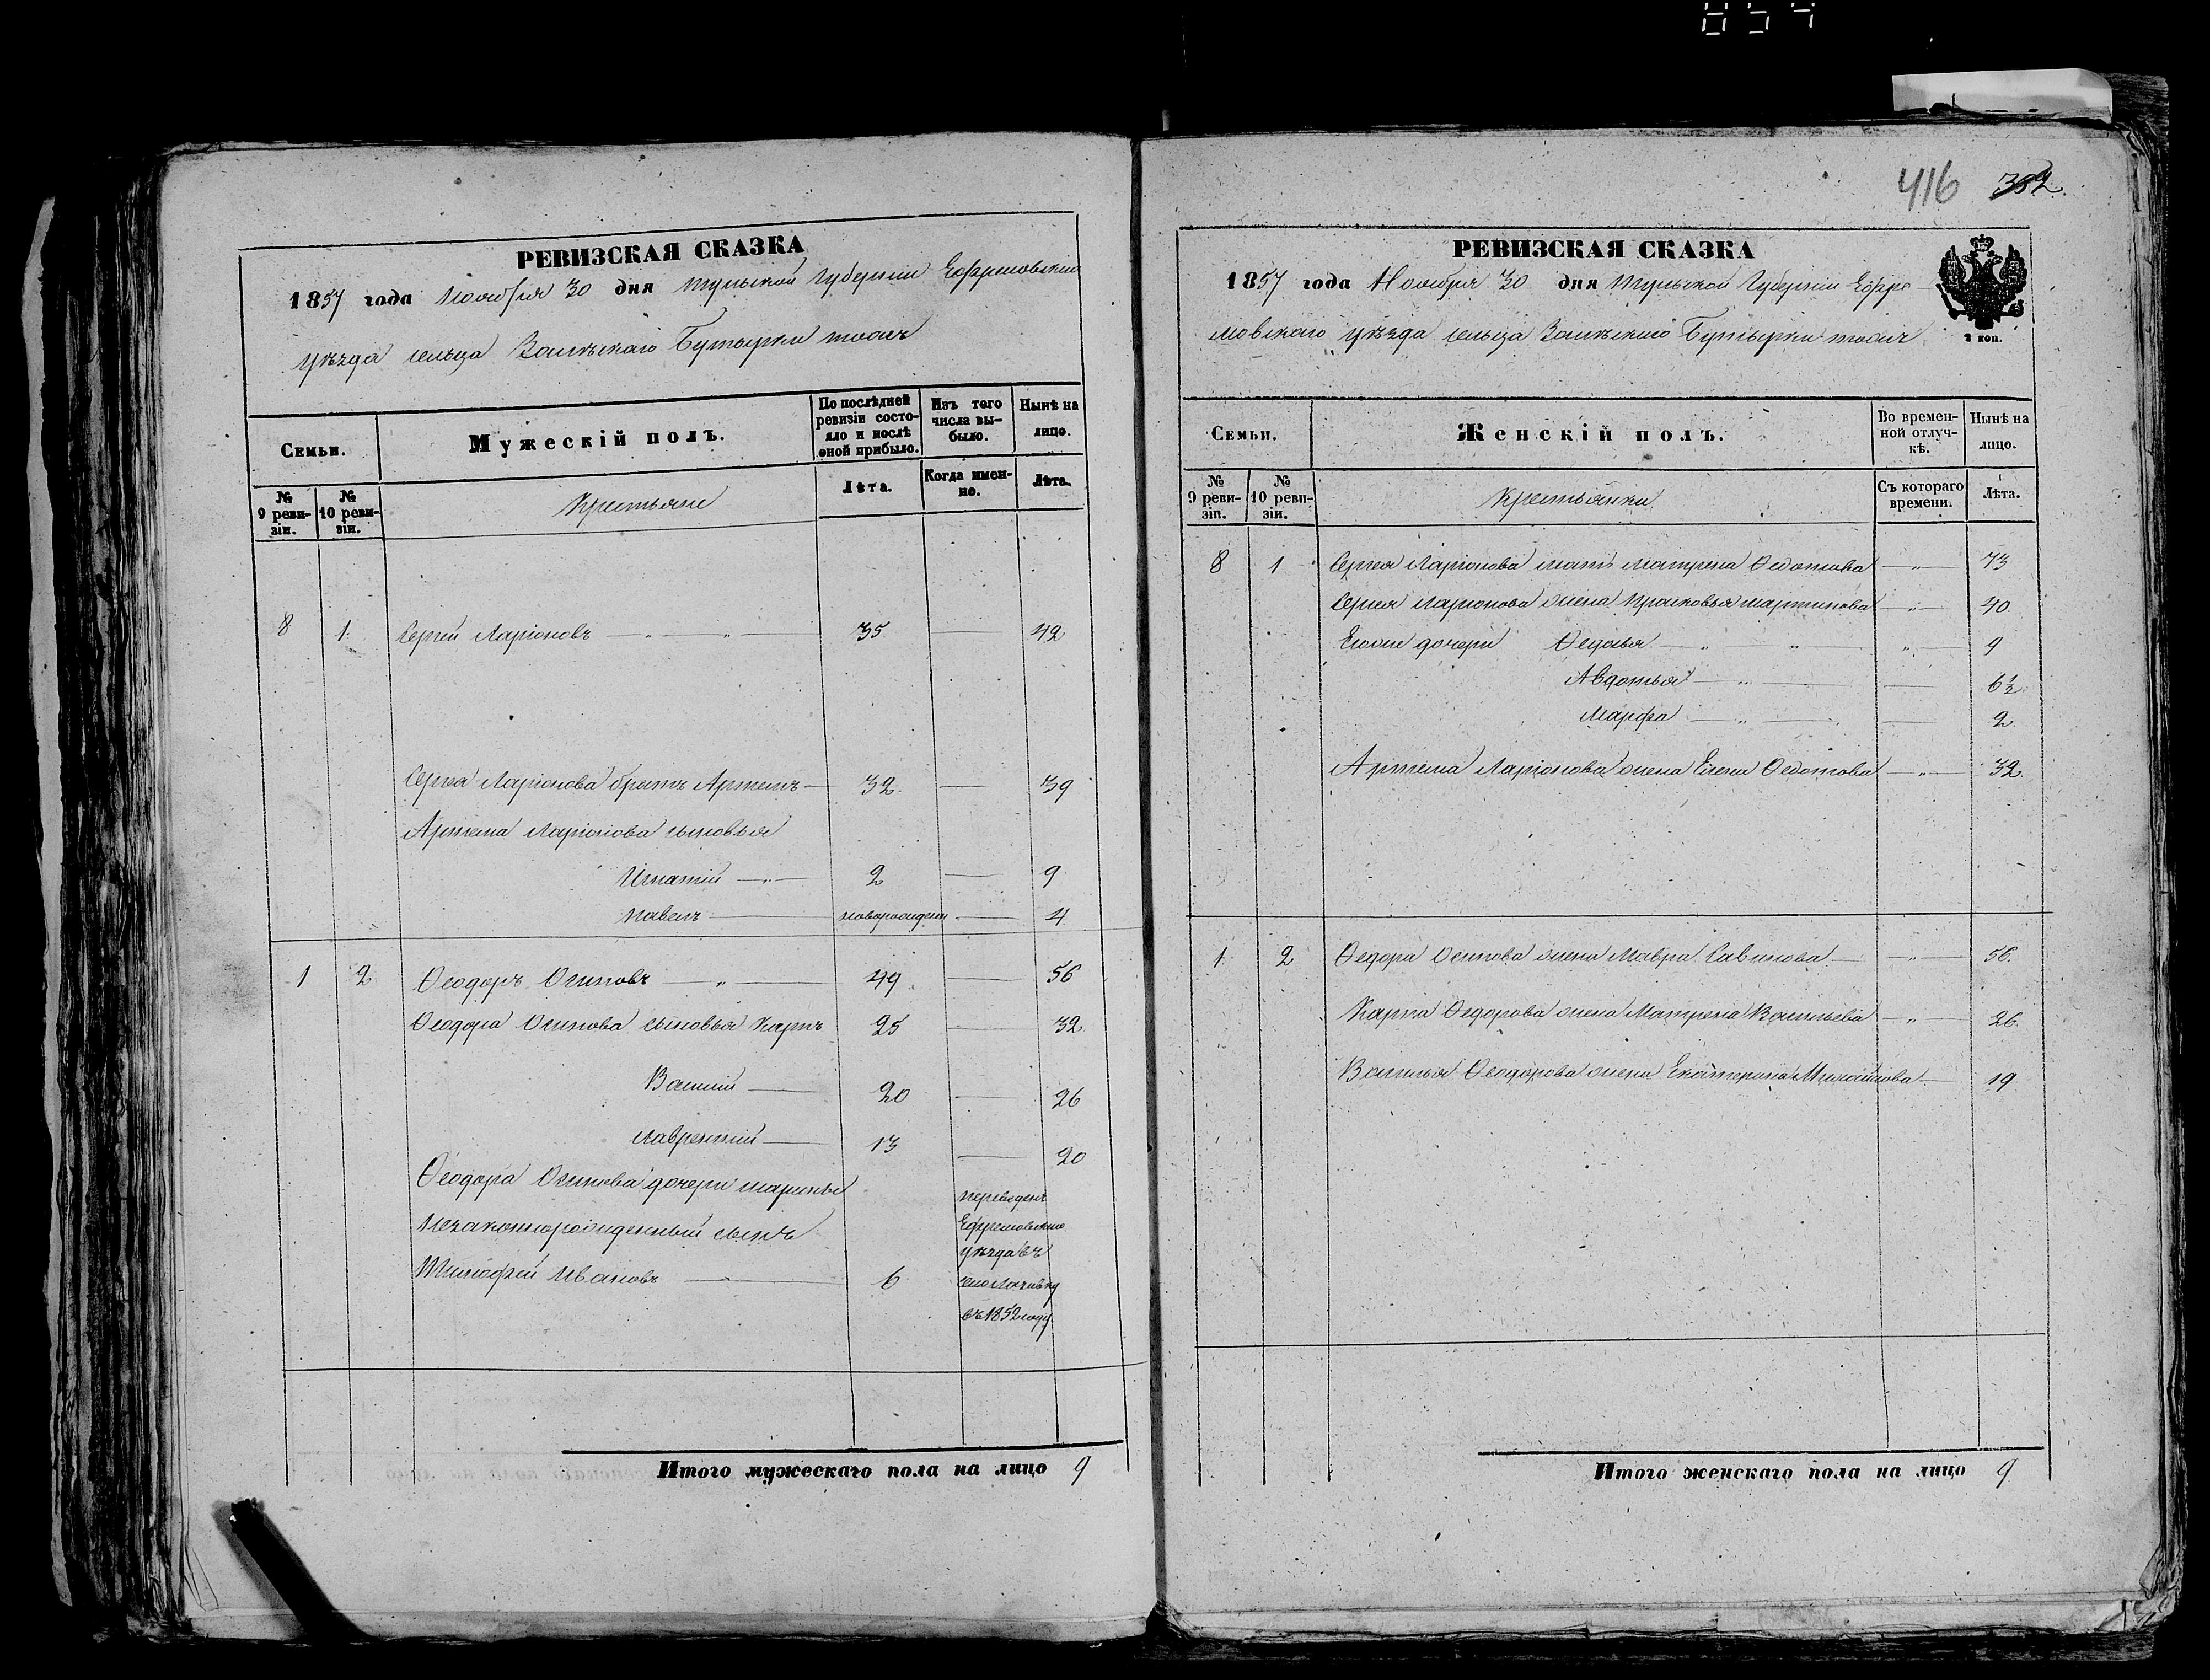 РЕВИЗСКАЯ СКАЗКА
1857 года Ноября 30 дня Тульской Губернiи Ефремовскаго
уѣзда сельца Бутырки тожъ
Семьи.
Мужескiй полъ.
По послѣдней ревизiи состояло и послѣ оной прибыло.
Изъ того числа выбыло.
Нынѣ на лицо.
№ 9 ревизiи.
№ 10 ревизiи.
Крестьяне
Лѣта.
Когда именно.
Лѣта.
8 1. Сергей Ларiоновъ 35 42
Сергея Ларiонова братъ Артемъ 32 39
Артема Ларiонова сыновья
Игнатiй 2 9
Павелъ новорожденъ 4
1 2 Ѳеодоръ Осиповъ 49 56
Ѳеодора Осипова сыновья Карпъ 25 32
Василiй 20 26
Лаврентiй 13 20
Ѳеодора Осипова дочери Марины
Незаконнорожденный сынъ
Тимофей Ивановъ 6
переведенъ
Ефремовскаго
уѣзда въ
въ 1852 году.
Итого мужескаго пола на лицо 9
416 382
РЕВИЗСКАЯ СКАЗКА
1857 года Ноября 30 дня Тульской Губернiи Ефре
мовскаго уѣзда сельца Бутырки тожъ
2 коп.
Семьи.
Женскiй полъ.
Во временной отлучкѣ.
Нынѣ на лицо.
№ 9 ревизiи.
№ 10 ревизiи.
Крестьянки
Съ котораго времени.
Лѣта.
8 1 Сергея Ларiонова мать Матрена Ѳедотова 73
Сергея Ларiонова жена Прасковья Мартинова 40
Ево же дочери Ѳедосья 9
Авдотья 6½
Марфа 2
Артема Ларiонова жена Елена Ѳедотова 32
1 2 Ѳедора Осипова жена Мавра Савинова 56.
Карпа Ѳедорова жена Матрена Васильева 26.
Василья Ѳеодорова жена Екатерина Михайлова 19
Итого женскаго пола на лицо 9